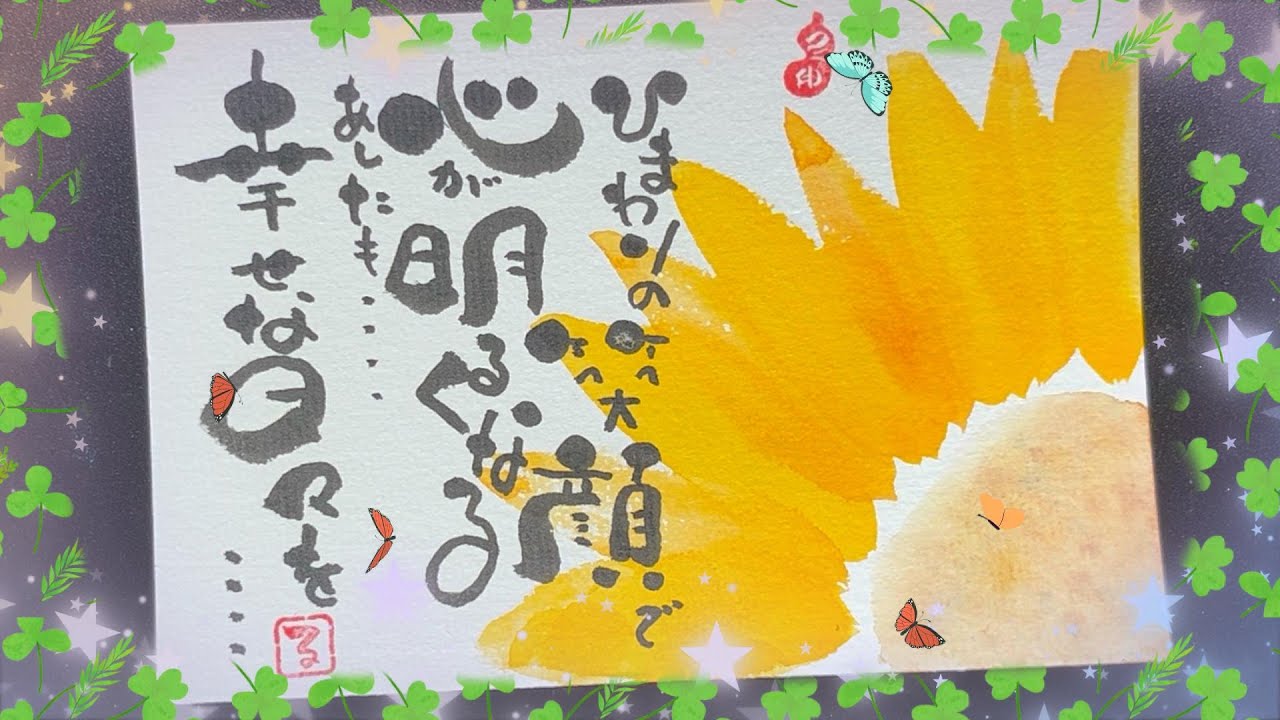 ひまわりの笑顔で
心が明るくなる
あしたも・・・・
幸せな日々を・・・・
る